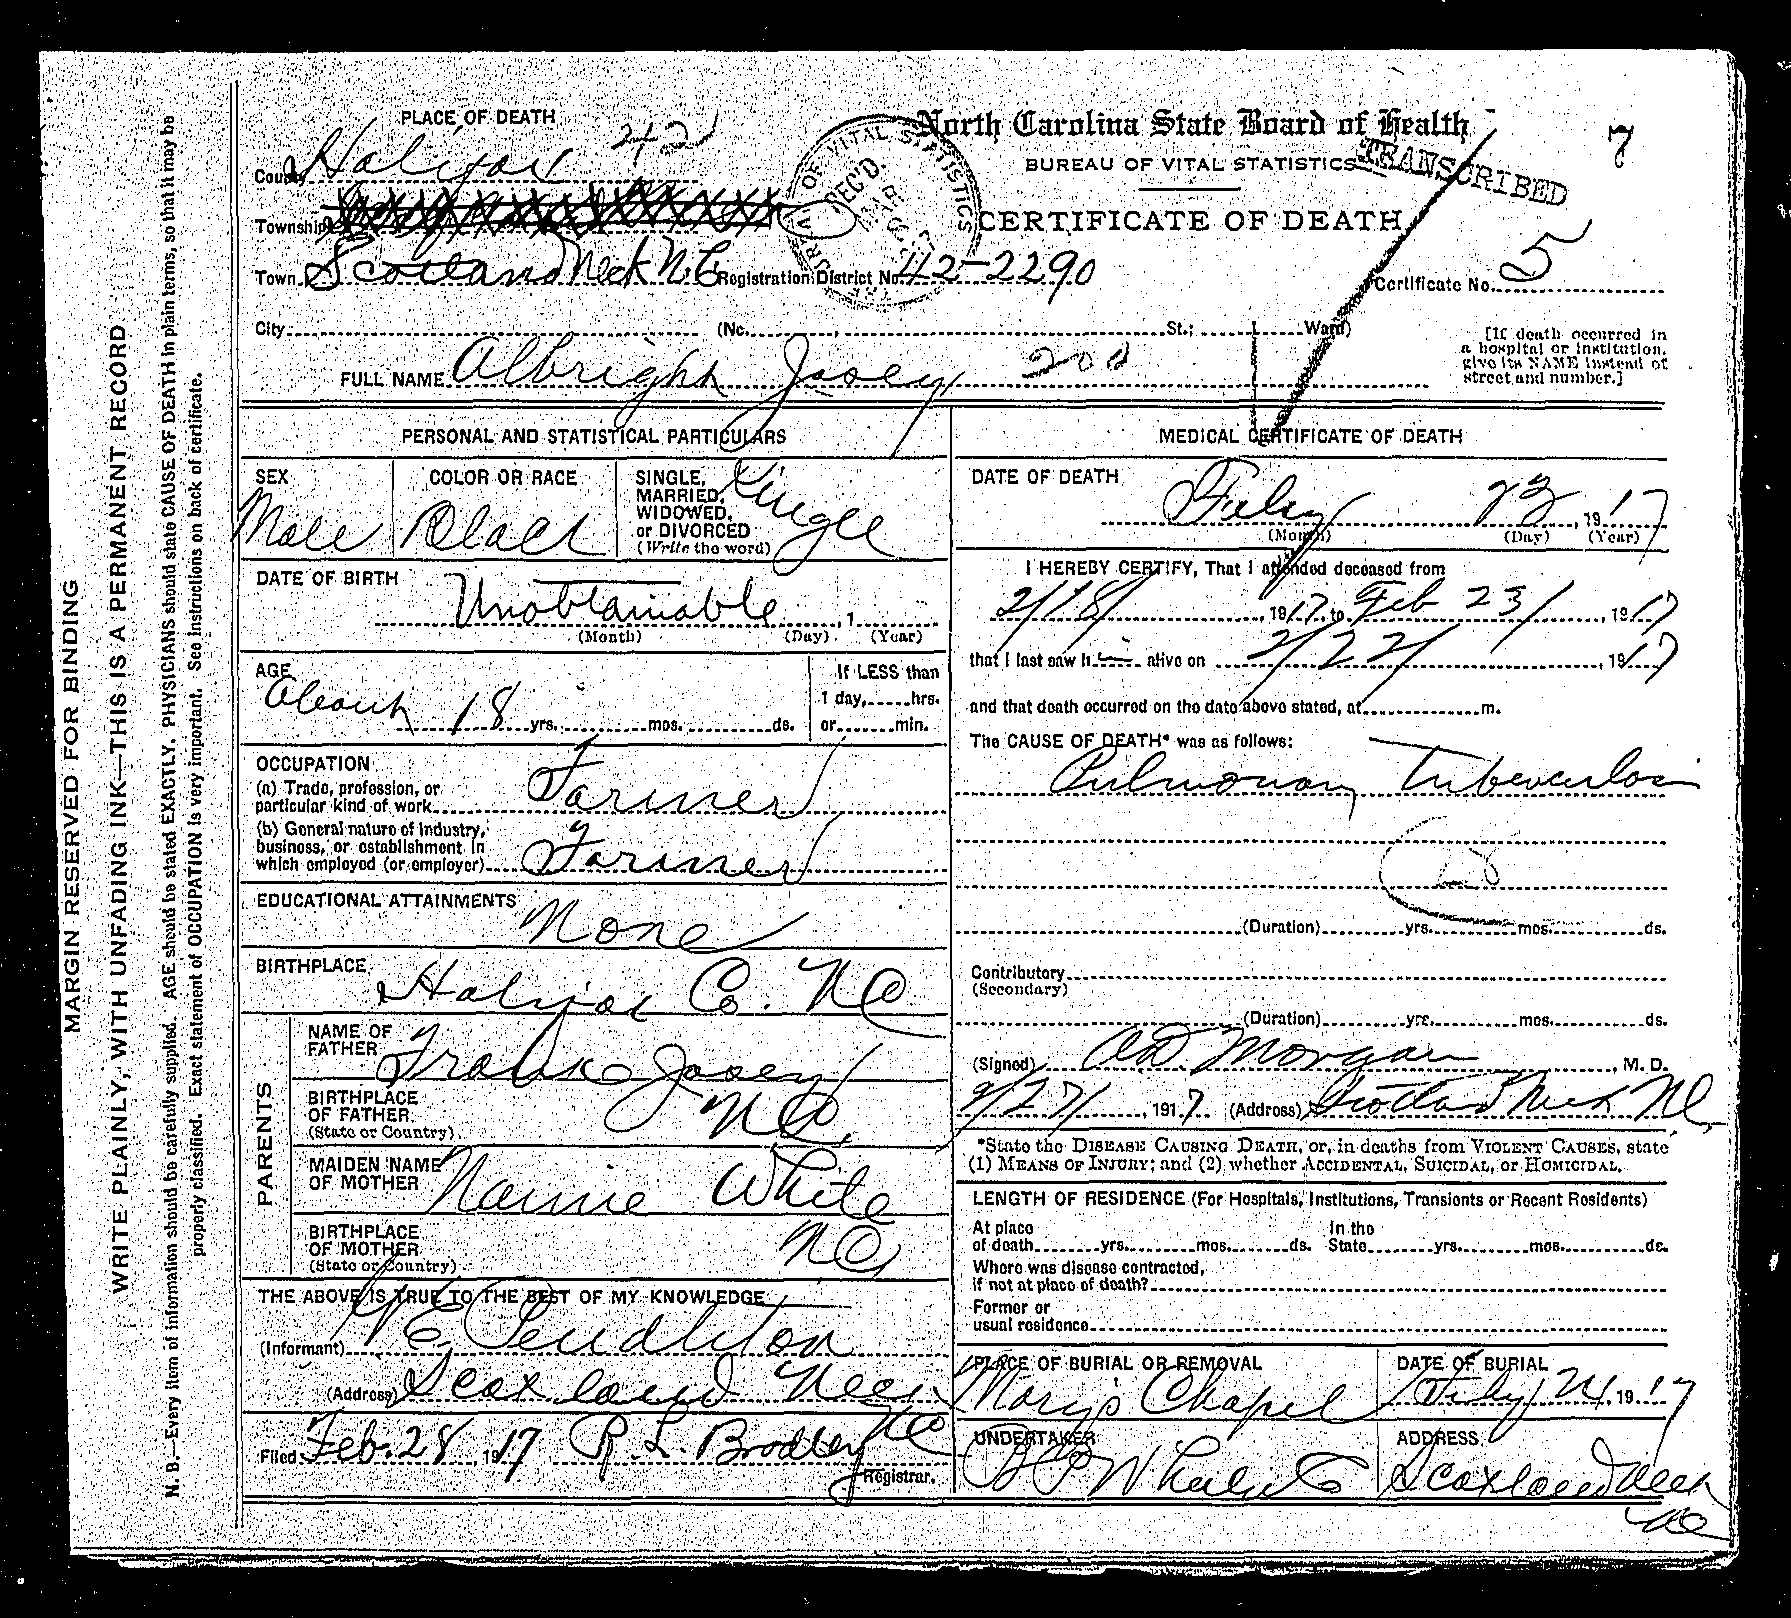 PLACE OF DEATH
County Halifax 42
Township
Town Scotland Neck N.C. Registration District No. 42-2290
City (No. St.; Ward)
FULL NAME Albright Josey
North Carolina State Board of Health
BUREAU OF VITAL STATISTICS
TRANSCRIBED
7
CERTIFICATE OF DEATH
Certificate No. 5
[If death occurred in
a hospital or institution,
give its NAME instead of
street and number.]
BUREAU OF VITAL STATISTICS
REC'D.
MAR
PERSONAL AND STATISTICAL PARTICULARS
SEX
Male
COLOR OR RACE
Black
SINGLE,
MARRIED,
WIDOWED,
or DIVORCED
(Write the word)
Single
DATE OF BIRTH
Unobtainable
(Month) (Day) (Year)
AGE
About 18 yrs. mos. ds.
If LESS than
1 day, hrs.
or min.
OCCUPATION
(a) Trade, profession, or
particular kind of work Farmer
(b) General nature of industry,
business, or establishment in
which employed (or employer) Farmer
EDUCATIONAL ATTAINMENTS
None
BIRTHPLACE
Halifax Co. NC
PARENTS
NAME OF
FATHER Frank Josey
BIRTHPLACE
OF FATHER
(State or Country) NC
MAIDEN NAME
OF MOTHER Nannie White
BIRTHPLACE
OF MOTHER
(State or Country) NC
THE ABOVE IS TRUE TO THE BEST OF MY KNOWLEDGE
(Informant) Pendleton
(Address) Scotland Neck NC
Filed Feb. 28, 1917 R. L. Bradley
Registrar.
MEDICAL CERTIFICATE OF DEATH
DATE OF DEATH
Feby 23, 1917
(Month) (Day) (Year)
I HEREBY CERTIFY, That I attended deceased from
2/18/, 1917, to Feb 23/, 1917
that I last saw him alive on 2/22/, 1917
and that death occurred on the date above stated, at m.
The CAUSE OF DEATH* was as follows:
Pulmonary Tuberculosis
(Duration) yrs. mos. ds.
Contributory
(Secondary)
(Duration) yrs. mos. ds.
(Signed) AD Morgan, M. D.
2/27/, 1917. (Address) Scotland Neck NC
*State the DISEASE CAUSING DEATH, or, in deaths from VIOLENT CAUSES, state
(1) MEANS OF INJURY; and (2) whether ACCIDENTAL, SUICIDAL, or HOMICIDAL.
LENGTH OF RESIDENCE (For Hospitals, Institutions, Transients or Recent Residents)
At place In the
of death yrs. mos. ds. State yrs. mos. ds.
Where was disease contracted,
if not at place of death?
Former or
usual residence
PLACE OF BURIAL OR REMOVAL
Mary's Chapel
DATE OF BURIAL
Feby 24, 1917
UNDERTAKER
ADDRESS
Scotland Neck
NC
MARGIN RESERVED FOR BINDING
WRITE PLAINLY, WITH UNFADING INK—THIS IS A PERMANENT RECORD
N. B.—Every item of information should be carefully supplied. AGE should be stated EXACTLY. PHYSICIANS should state CAUSE OF DEATH in plain terms, so that it may be
properly classified. Exact statement of OCCUPATION is very important. See instructions on back of certificate.